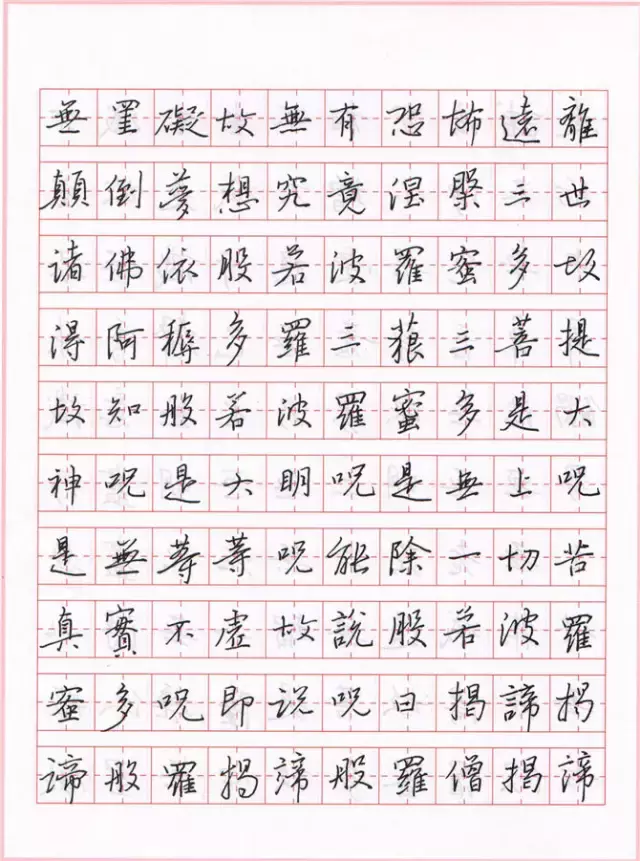 無罣礙故無有恐怖遠離
顛倒夢想究竟涅槃三世
诸佛依股若波羅蜜多故
得阿耨多羅三藐三菩提
故知般若波羅蜜多是大
神咒是大明咒是無上咒
是無等等咒能除一切苦
真實不虛故說股若波羅
蜜多咒即说咒曰揭諦揭
諦般羅揭諦般羅僧揭諦